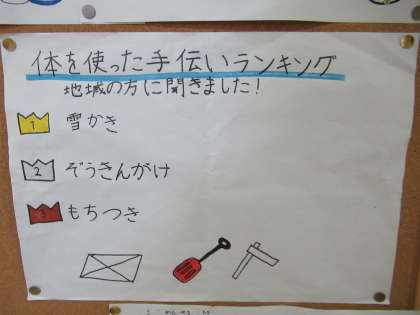 体を使った手伝いランキング
地域の方に聞きました！
1 雪かき
2 ぞうきんがけ
3 もちつき